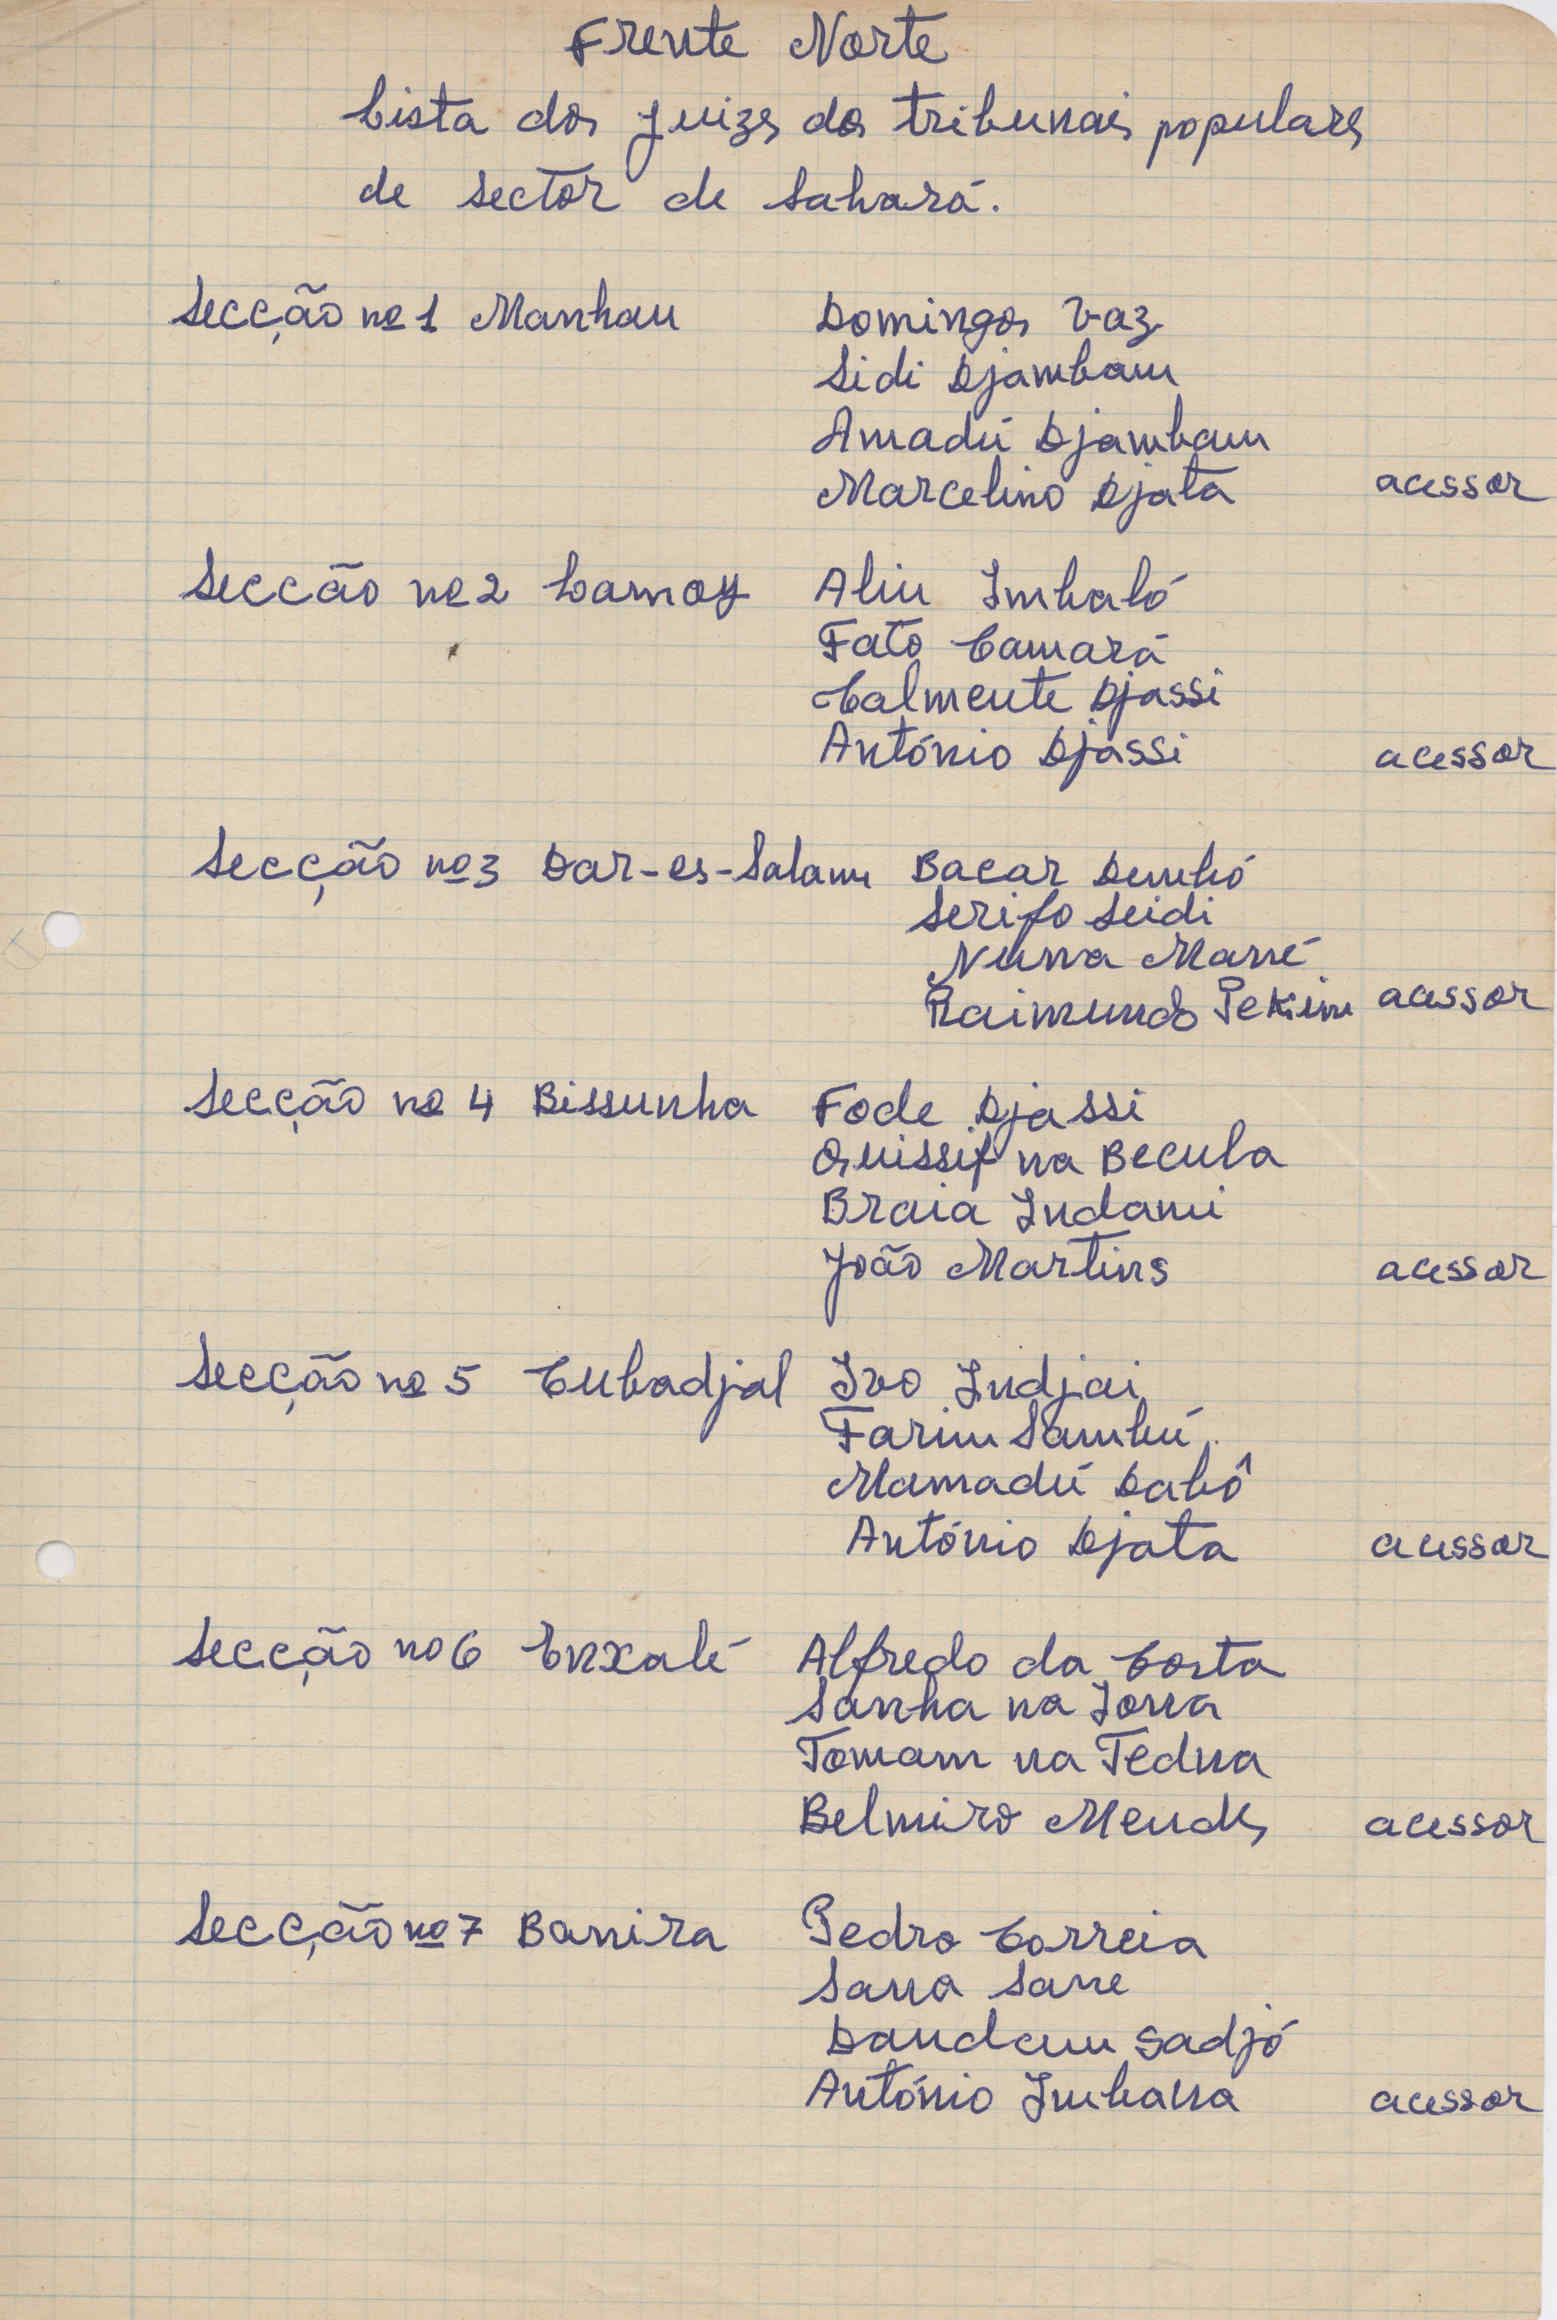 Frente Norte
Lista dos juizes dos tribunais populares
de sector de Sahará.
Secção nº 1 Manhau Domingos Vaz
Sidi Djambam
Amadú Djambam
Marcelino Djata acessor
Seccão nº 2 Lamoy Aliu Imbaló
Fato Camará
Calmente Djassi
António Djassi acessor
Secção nº 3 Dar-es-Salam Bacar Dembó
Serifo Seidi
Nunna Mané
Raimundo Pekim acessor
Secção nº 4 Bissunha Fode Djassi
Quissif na Becula
Braia Indami
João Martins acessor
Secção nº 5 Cubadjal Ivo Indjai
Farim Sambú
Mamadú Dabô
António Djata acessor
Secção nº 6 Enxalé Alfredo da Costa
Sanha na Iona
Tomam na Tedna
Belmiro Mendes acessor
Secção nº 7 Banira Pedro Correia
Sana Sane
Dandam Sadjó
António Imbana acessor